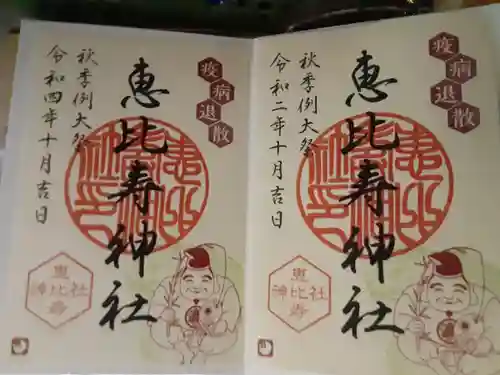 疫病退散
恵比寿神社
秋季例大祭
令和四年十月吉日
恵
神比社
寿
疫病退散
恵比寿神社
秋季例大祭
令和二年十月吉日
恵
神比社
寿